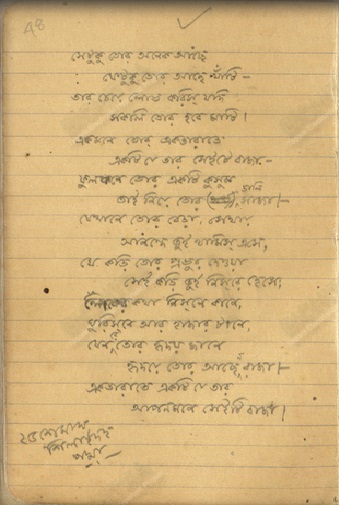 48
যেটুকু তোর অনেক আছে
যেটুকু তোর আছে খাঁটি –
তার চেয়ে লোভ করিস যদি
সকলি তোর হবে মাটি।
একমনে তোর একতারাতে
একটি যে তার সেইটে বাজা, –
ফুলবনে তোর একটি কুসুম
তাই নিয়ে তোর ডালি সাজা। –
যেখানে তোর বেড়া, সেথায়
আনন্দে তুই থামিস এসে,
যে কড়ি তোর প্রভুর দেওয়া
সেই কড়ি তুই নিস্‌রে হেসে,
লোকের কথা নিস্‌নে কানে,
ফিরিস্‌নে আর হাজার টানে,
যেন রে তোর হৃদয় জানে
হৃদয়ে তোর আছেন রাজা। –
একতারাতে একটি যে তার
আপনমনে সেইটি বাজা।
শিলাইদহ
পদ্মা –